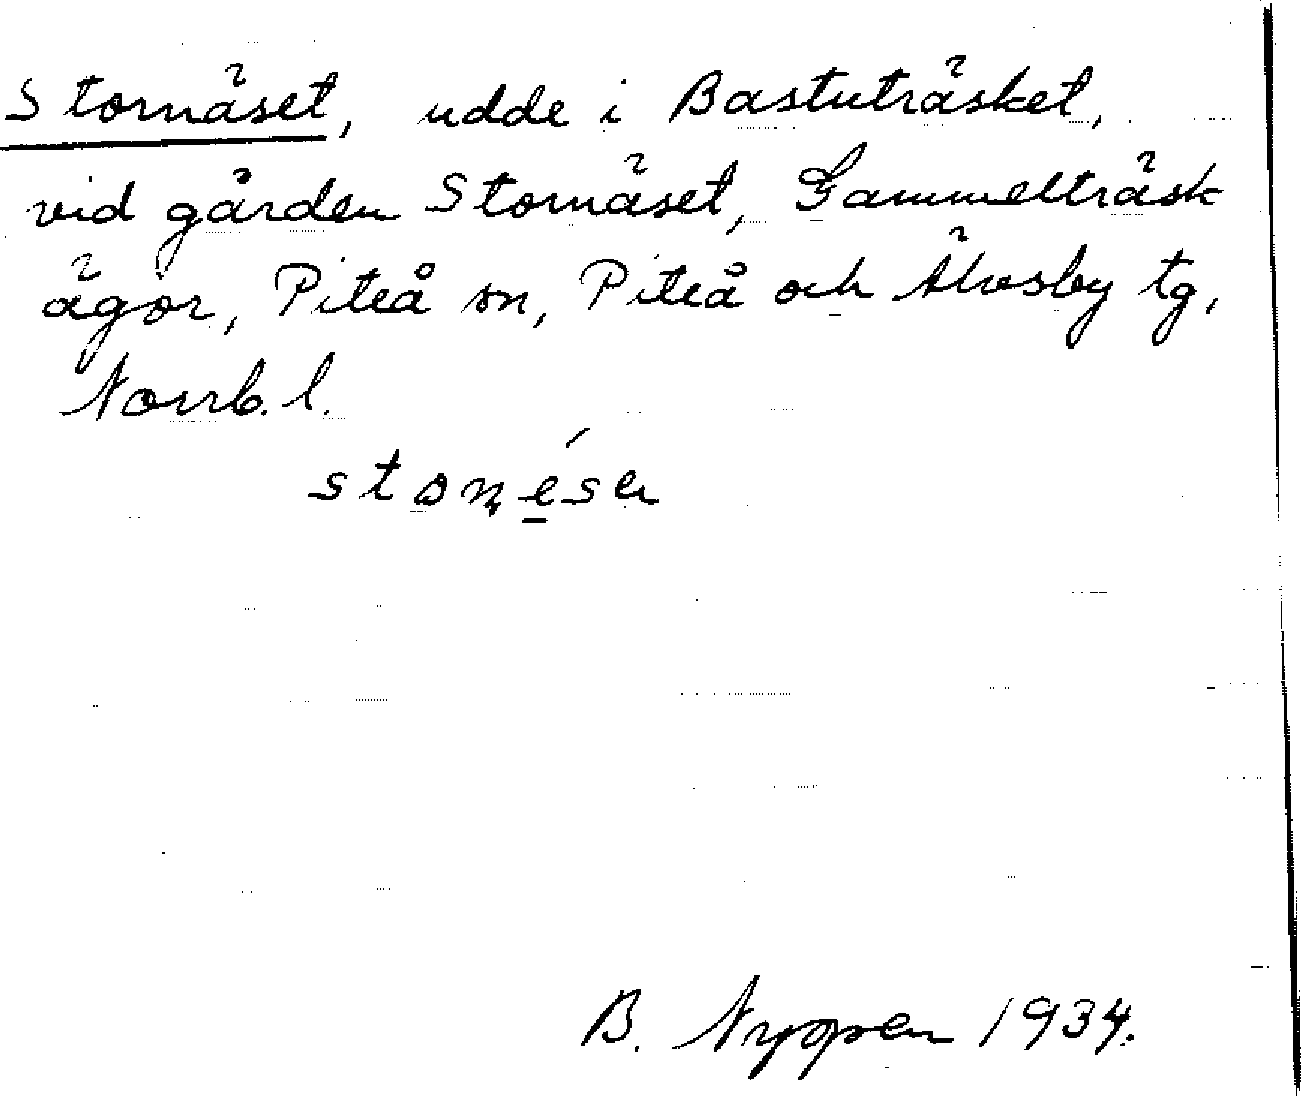 Stornäset, udde i Bastuträsket,
vid gården Stornäset, Gammelträsk
ägor, Piteå sn, Piteå och Älvsby tg,
Norrb. l.
B. Nyppen 1934.